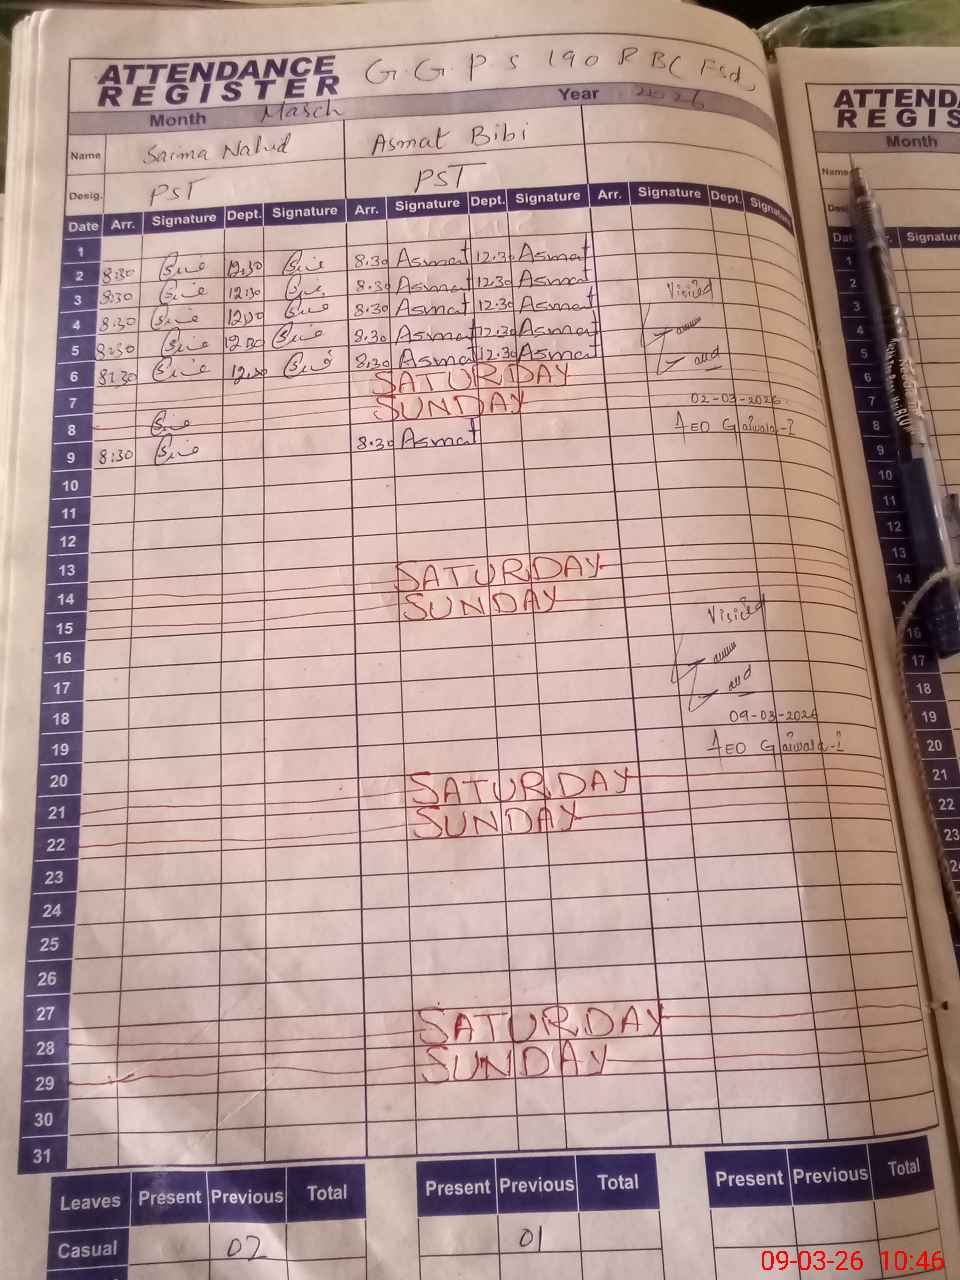 ATTENDANCE REGISTER G.G.P.S 190 RBC Fsd
Month March Year 2026
Name Saima Asmat Bibi
Desig. PST PST
Date Arr. Signature Dept. Signature Arr. Signature Dept. Signature Arr. Signature Dept. Signature
1
2 8:30 12:30 8.30 Asmat 12.30 Asmat
3 8:30 12:30 8.30 Asmat 12.30 Asmat
4 8:30 12:30 8.30 Asmat 12.30 Asmat
5 8:30 12:30 8.30 Asmat 12.30 Asmat
6 8:30 12:30 8.30 Asmat 12.30 Asmat
7 SATURDAY
8 SUNDAY
9 8:30 8.30 Asmat
10
11
12
13
14 SATURDAY
15 SUNDAY
16
17
18
19
20
21 SATURDAY
22 SUNDAY
23
24
25
26
27
28 SATURDAY
29 SUNDAY
30
31
Visited
02-03-2026
AEO
Visited
09-03-2026
AEO
Leaves Present Previous Total Present Previous Total Present Previous Total
Casual 02 01
ATTENDA
REGIS
Month
Name
Signature
1
2
3
4
5
6
7
8
9
10
11
12
13
14
16
17
18
19
20
21
22
23
09-03-26 10:46